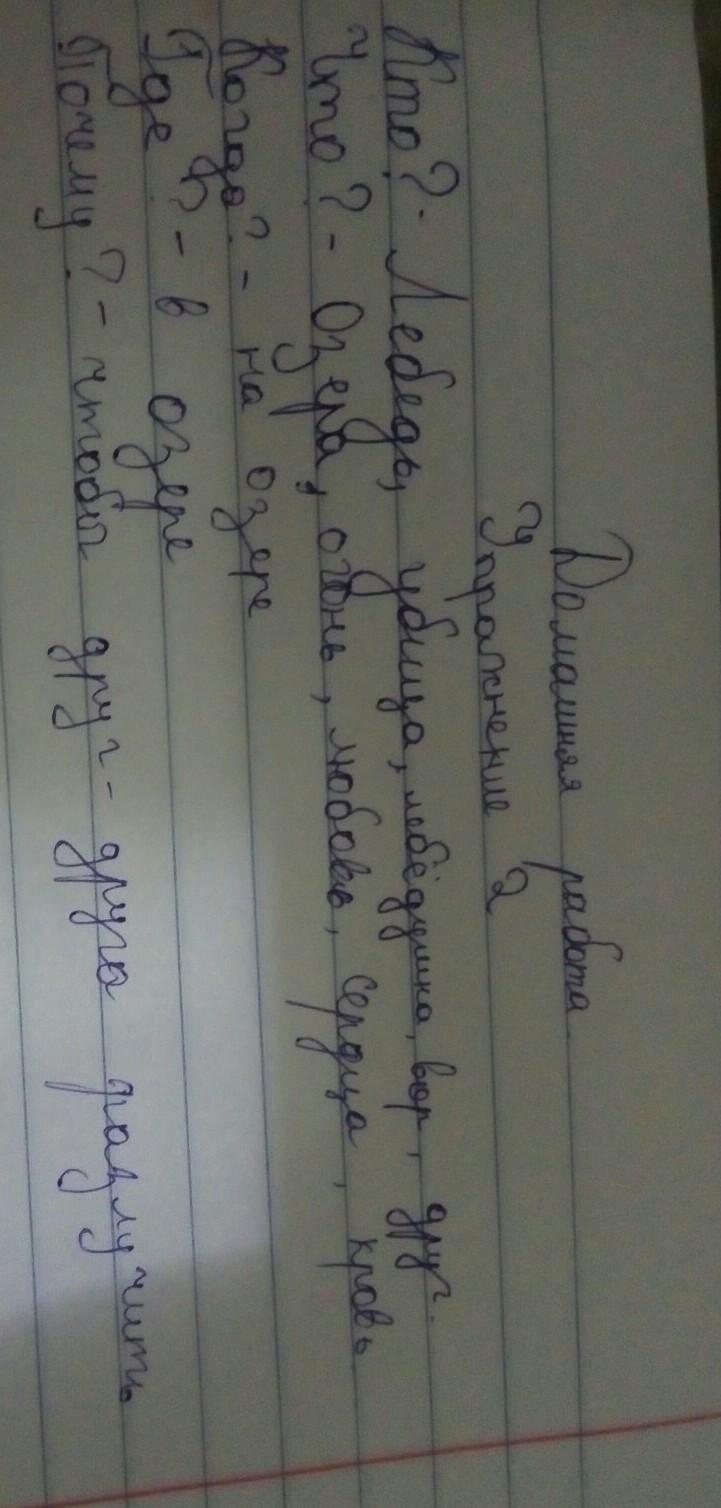 Домашняя работа.
Упражнение 2
Кто?. Лебедь, убийца, лебёдушка, вор, друг.
Что? - Озера, огонь, любовь, сердца, кровь
Когда? - на озере
Где? - в озере
Почему? - чтобы друг - друга разлучить